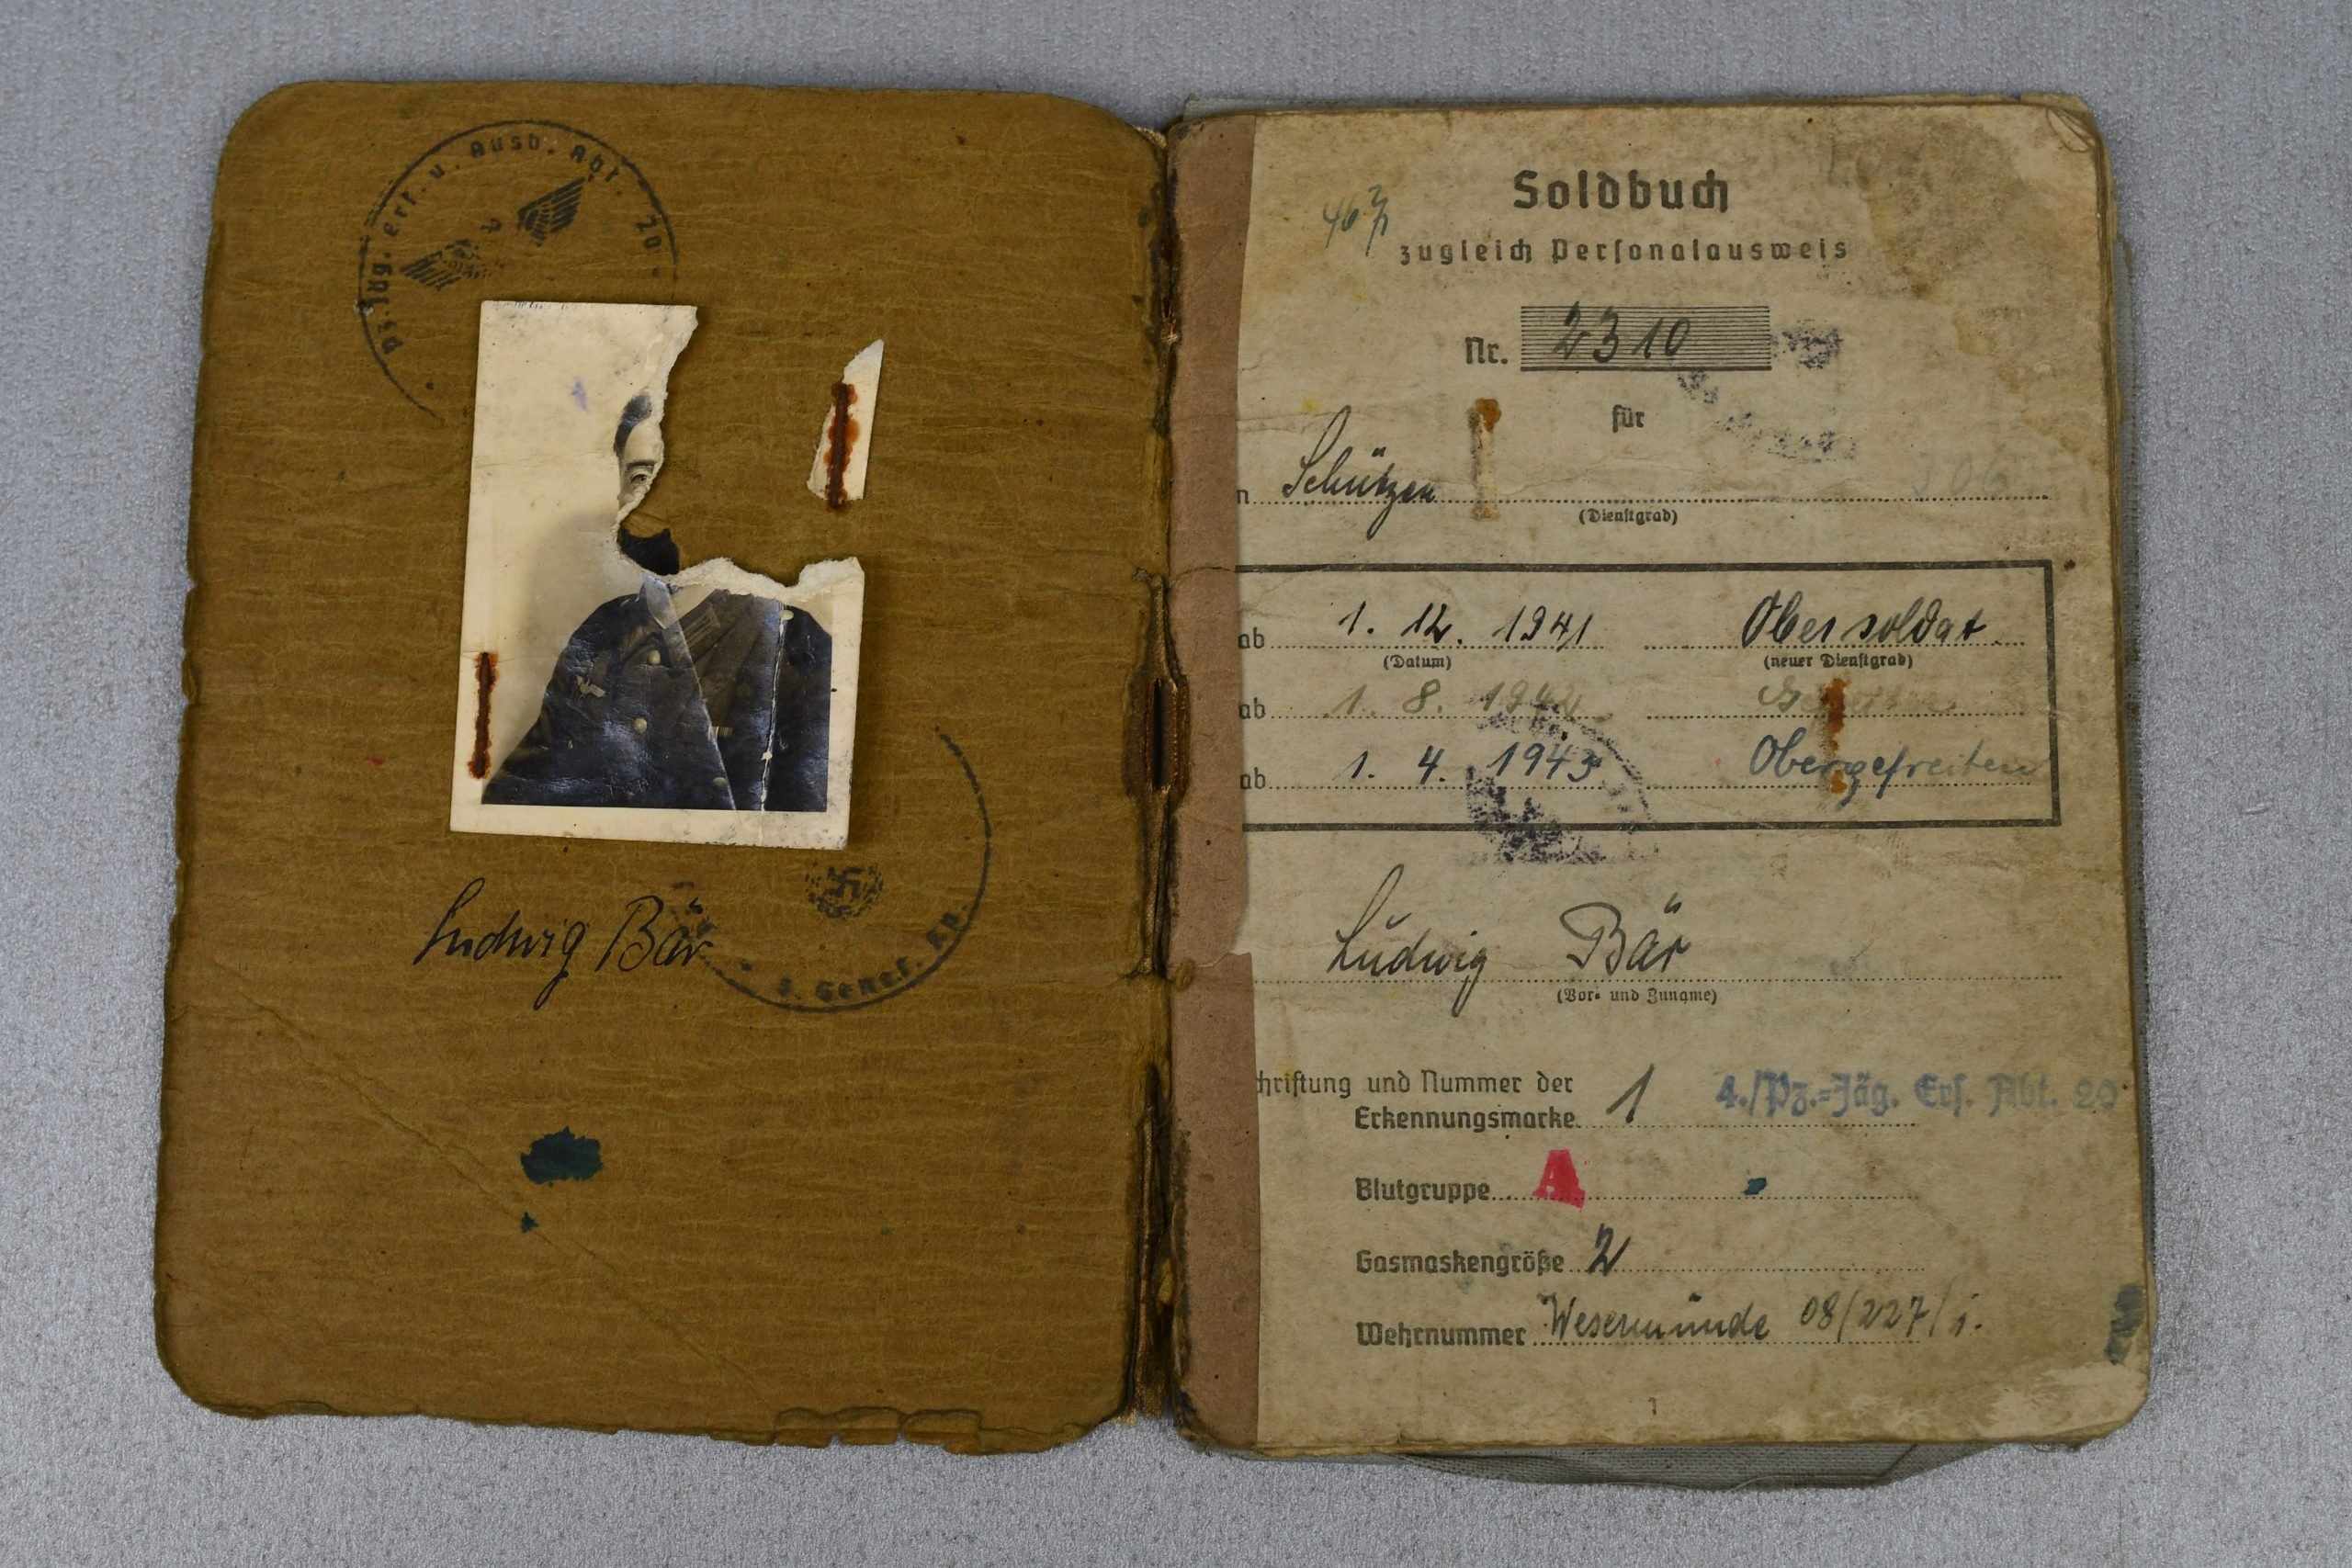 Pz. Jäg. Ers. u. Ausb. Abt. 20
Ludwig Bär
Soldbuch
zugleich Personalausweis
Nr. 2310
für
n Schützen
(Dienstgrad)
ab 1. 12. 1941 Obersoldat
(Datum) (neuer Dienstgrad)
ab 1. 8. 1942
ab 1. 4. 1943 Obergefreiten
Ludwig Bär
(Vor- und Zuname)
chriftung und Nummer der
Erkennungsmarke 1 4./Pz.=Jäg. Ers. Abt. 20
Blutgruppe A
Gasmaskengröße 2
Wehrnummer Wesermünde 08/227/1.
1